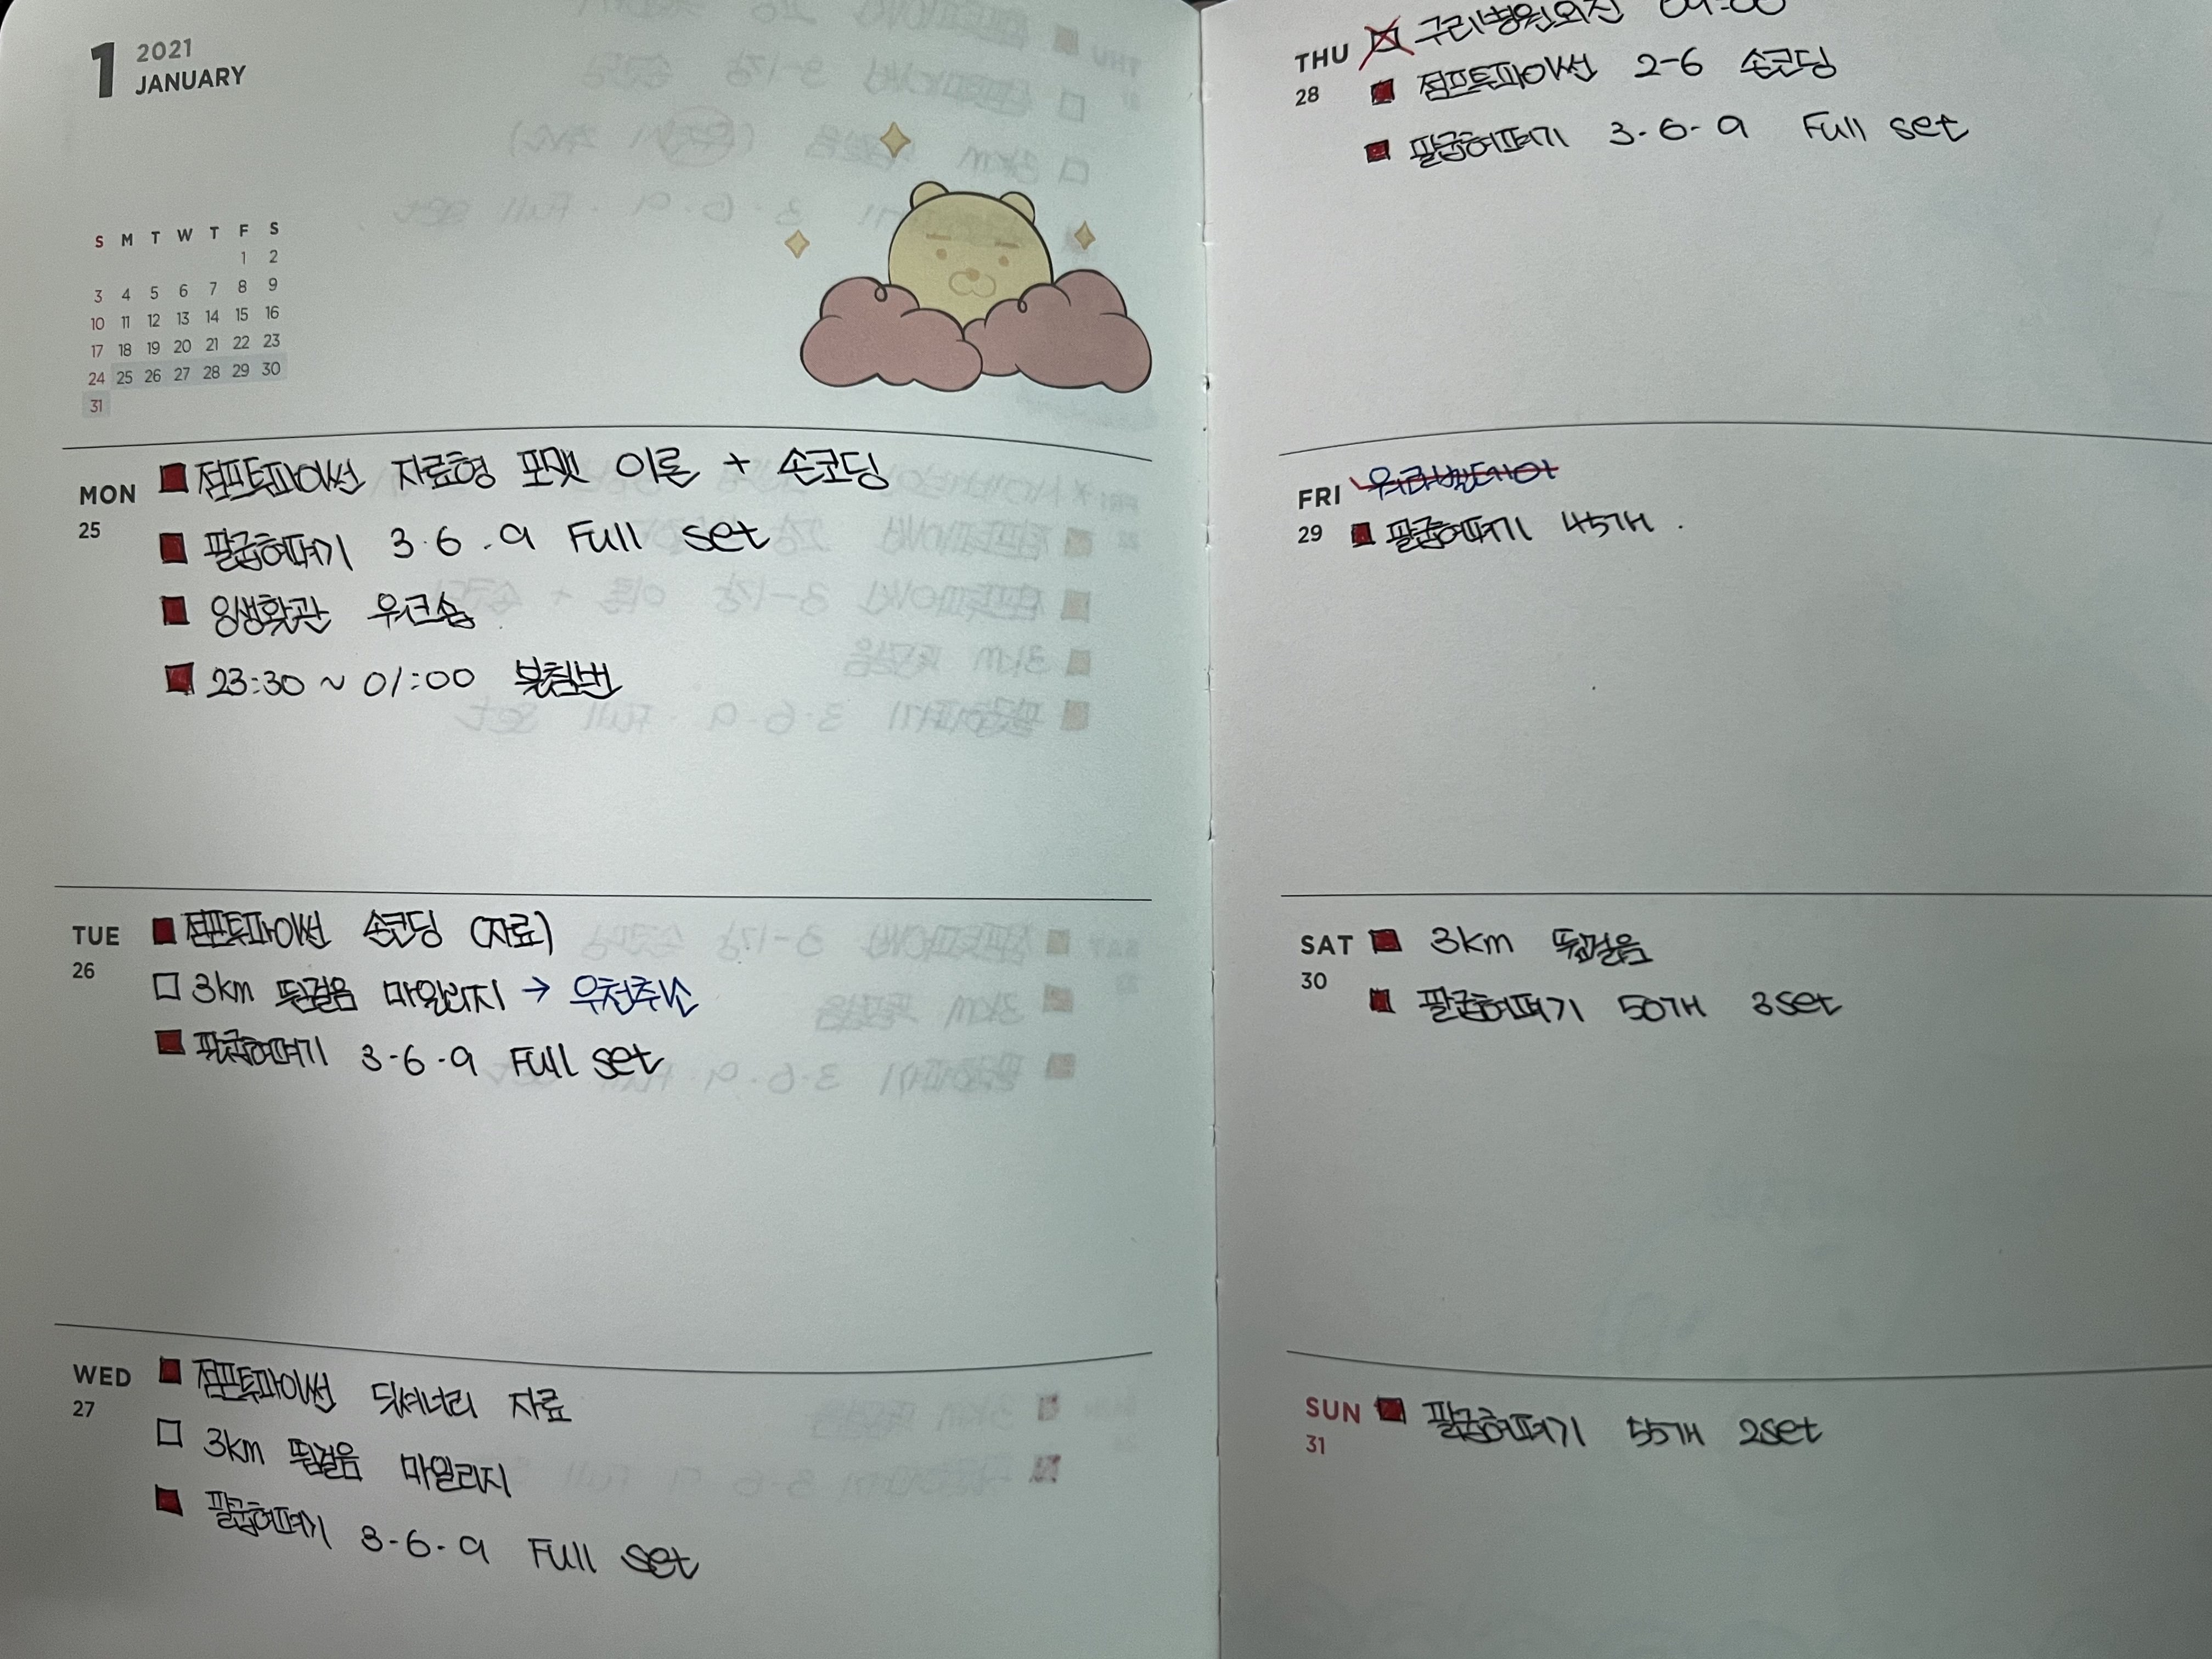 1 2021
JANUARY
S M T W T F S
1 2
3 4 5 6 7 8 9
10 11 12 13 14 15 16
17 18 19 20 21 22 23
24 25 26 27 28 29 30
31
MON
25
점프투파이썬 자료형 포맷 이론 + 손코딩
팔굽혀펴기 3.6.9 Full set
생활관 워크숍
23:30 ~ 01:00 불침번
TUE
26
점프투파이썬 손코딩 (자료)
3km 뜀걸음 마일리지 → 우천취소
팔굽혀펴기 3-6-9 Full set
WED
27
점프투파이썬 딕셔너리 자료
3km 뜀걸음 마일리지
팔굽혀펴기 3-6-9 Full set
THU
28
구리병원외진 09:00
점프투파이썬 2-6 손코딩
팔굽혀펴기 3-6-9 Full set
FRI
29
팔굽혀펴기 45개.
SAT
30
3km 뜀걸음
팔굽혀펴기 50개 3set
SUN
31
팔굽혀펴기 55개 2set